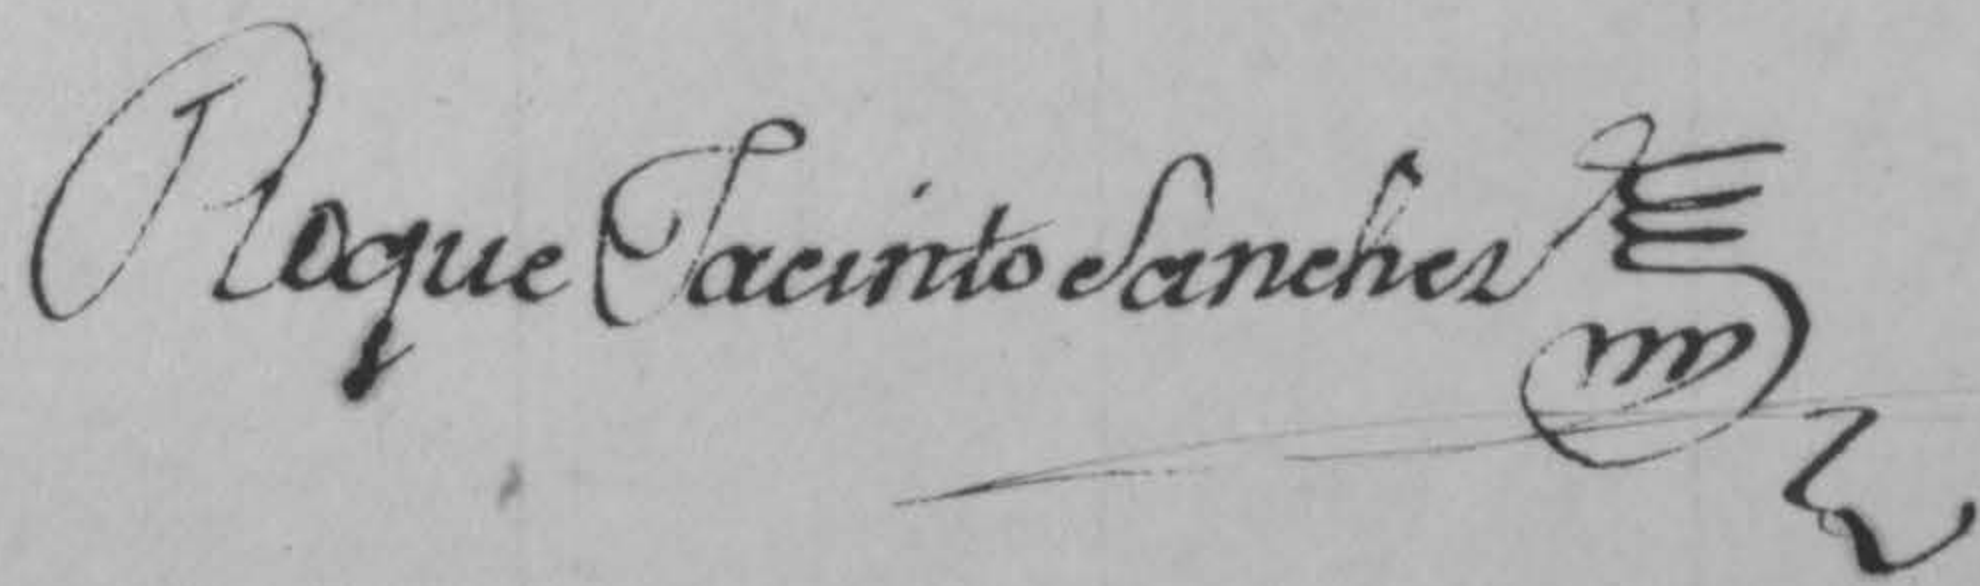 Roque Jacinto Sanchez